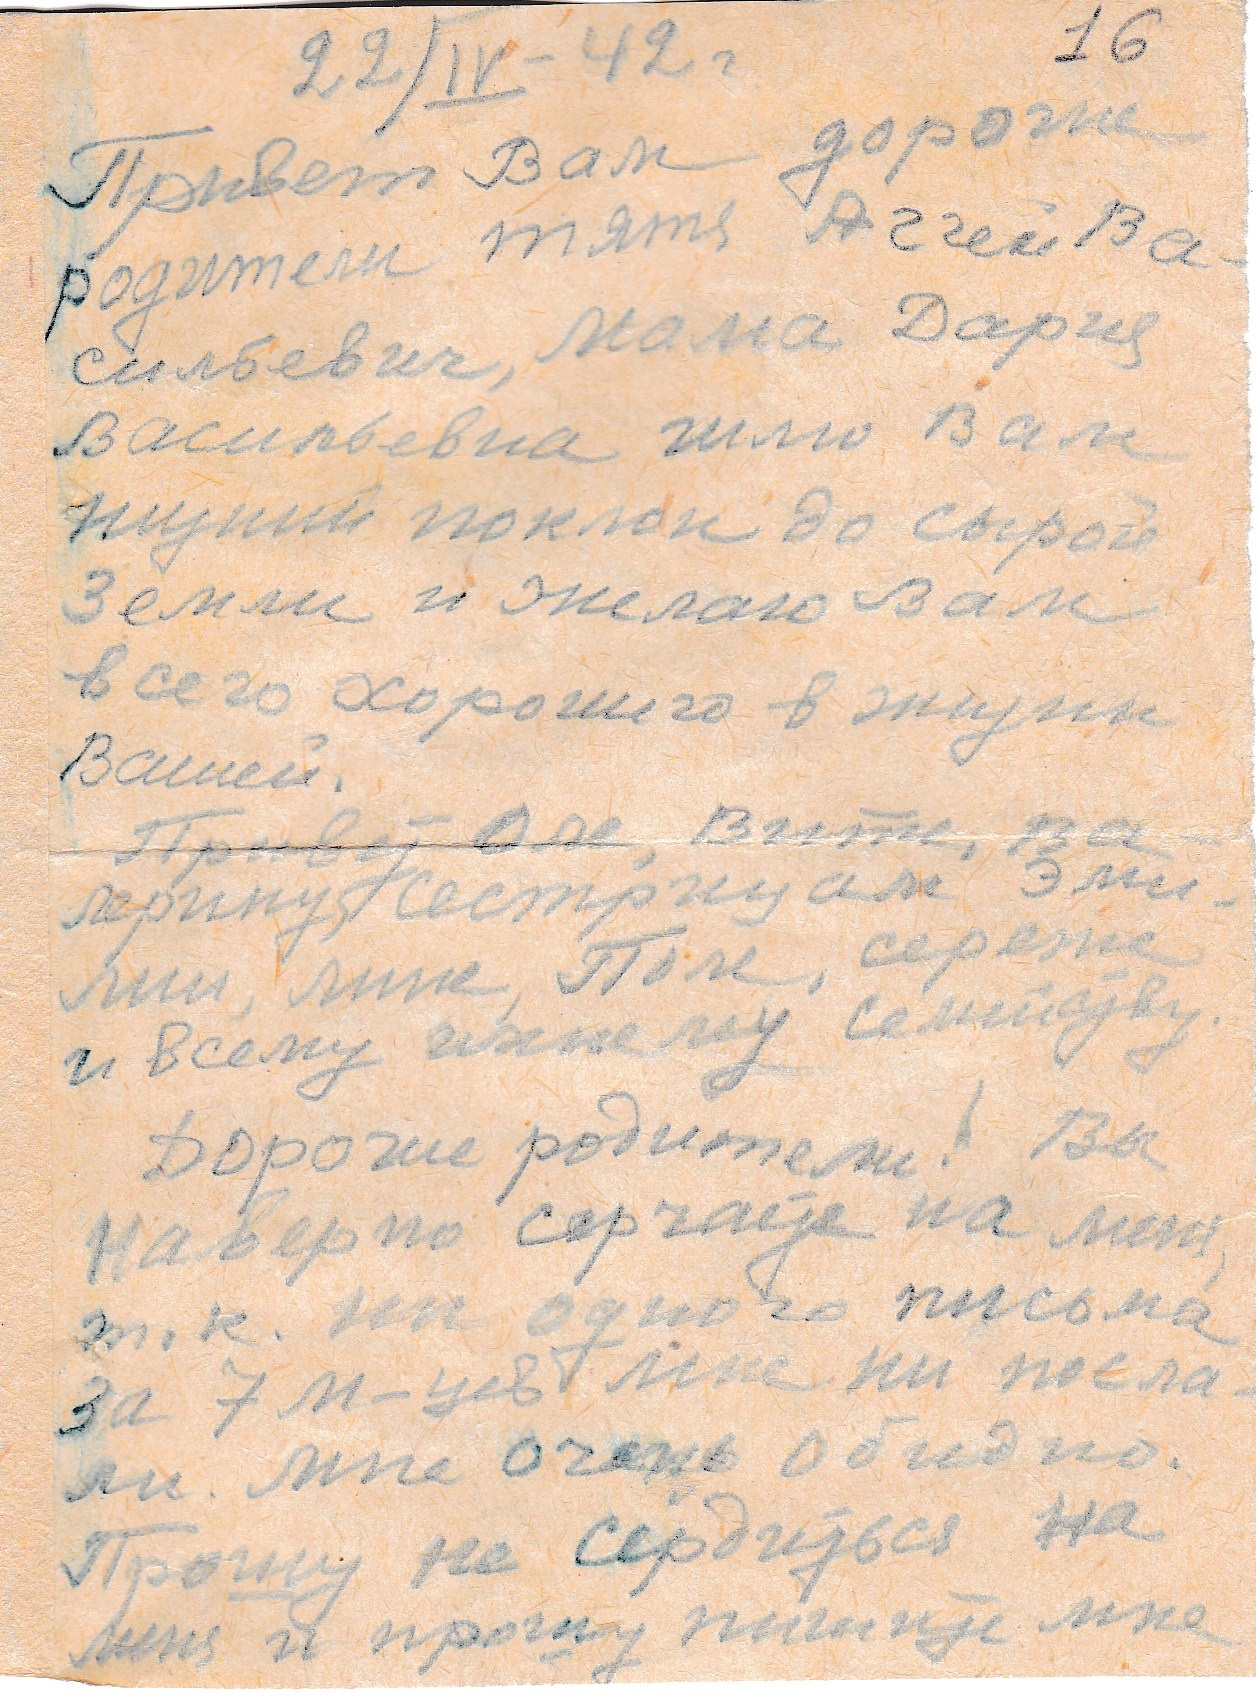 16
22/IV-42 г.
Привет Вам дорогие
родители тятя Аггей Ва-
сильевич, мама Дария
Васильевна шлю Вам
низкий поклон до сырой
Земли и желаю Вам
всего хорошего в жизни
Вашей.
Привет Оле, Вите, Ва-
лерину, сестрицам Эми-
лии, Поле, сереже
и всему ихнему семейству.
Дорогие родители! Вы
Наверно серчаете на меня,
т.к. ни одного письма
За 7 м-цев мне ни посла-
ли. мне очень обидно.
Прошу не сердиться на
меня и прошу пишите мне